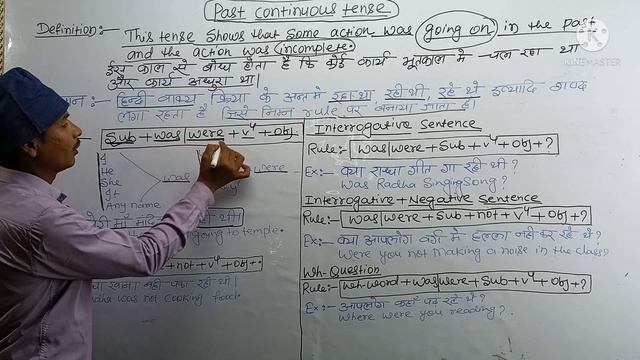 Past continuous tense
Definition:- This tense shows that some action was going on in the past
and the action was incomplete.
इस काल से बोध होता है कि कोई कार्य भूतकाल मे चल रहा था
और कार्य अधुरा था।
:- हिन्दी वाक्य क्रिया के अन्त मे रहा था रही थी, रहे थे इत्यादि शब्द
लगा रहता है जिसे निम्न rule पर बनाया जाता है।
Sub + was/were + v⁴ + obj
I
He
She
It
Any name
was
were
थी।
going to temple.
+not+v⁴+obj+.
खाना नही पका रही थी।
was not cooking food.
Interrogative Sentence
Rule:- was/were+Sub+v⁴+obj+?
Ex:- क्या राधा गीत गा रही थी?
Was Radha singing song?
Interrogative + Negative Sentence
Rule:- was/were+Sub+not+v⁴+obj+?
Ex:- क्या आपलोग वर्ग मे हल्ला नही कर रहे थे?
Were you not making a noise in the class?
Wh-Question
Rule:- wh-word+was/were+Sub+v⁴+obj+?
Ex:- आपलोग कहाँ पढ़ रहे थे?
Where were you reading?
KINEMASTER